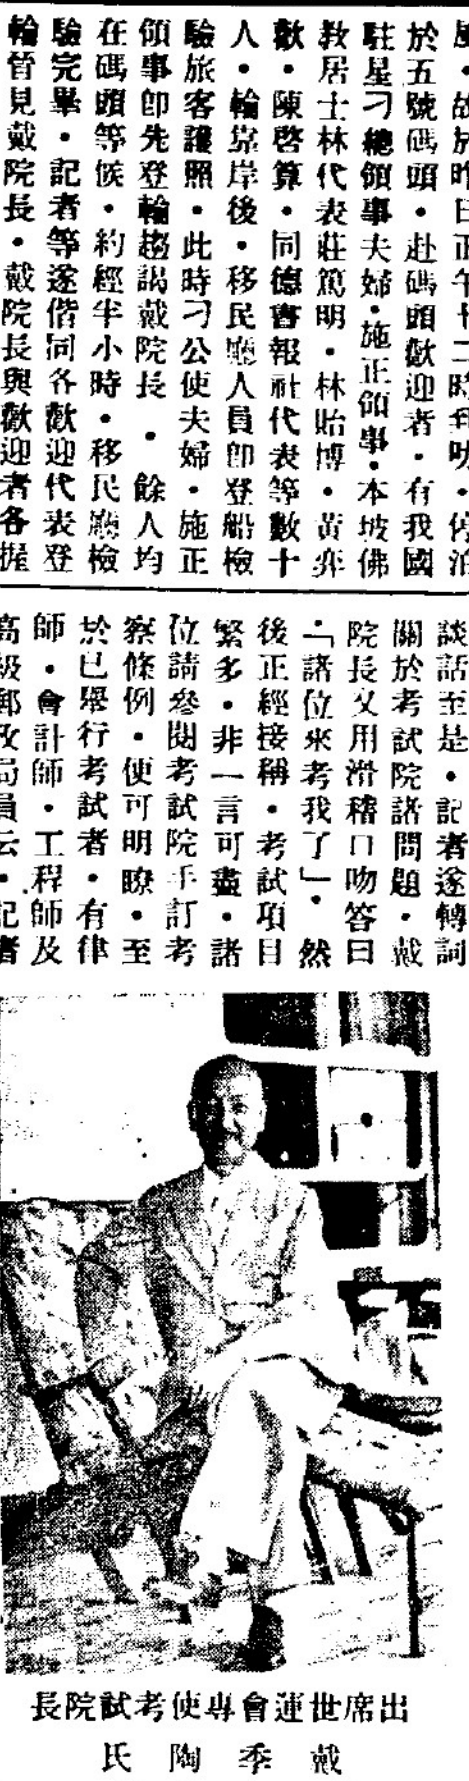 風・故於昨日正午十二時到叻・停泊
於五號碼頭・赴碼頭歡迎者・有我國
駐星刁總領事夫婦・施正領事・本坡佛
教居士林代表莊篤明・林貽博・黃弈
歡・陳啓算・同德書報社代表等數十
人・輪靠岸後・移民廳人員卽登船檢
驗旅客護照・此時刁公使夫婦・施正
領事卽先登輪趨謁戴院長・餘人均
在碼頭等候・約經半小時・移民廳檢
驗完畢・記者等遂偕同各歡迎代表登
輪晉見戴院長・戴院長與歡迎者各握
談話至是・記者遂轉詞
關於考試院諸問題・戴
院長又用滑稽口吻答曰
・「諸位來考我了」・然
後正經接稱・考試項目
繁多・非一言可盡・諸
位請參閱考試院手訂考
察條例・便可明瞭・至
於已舉行考試者・有律
師・會計師・工程師及
高級郵政局員云・記者
出席世運會專使考試院長
戴季陶氏